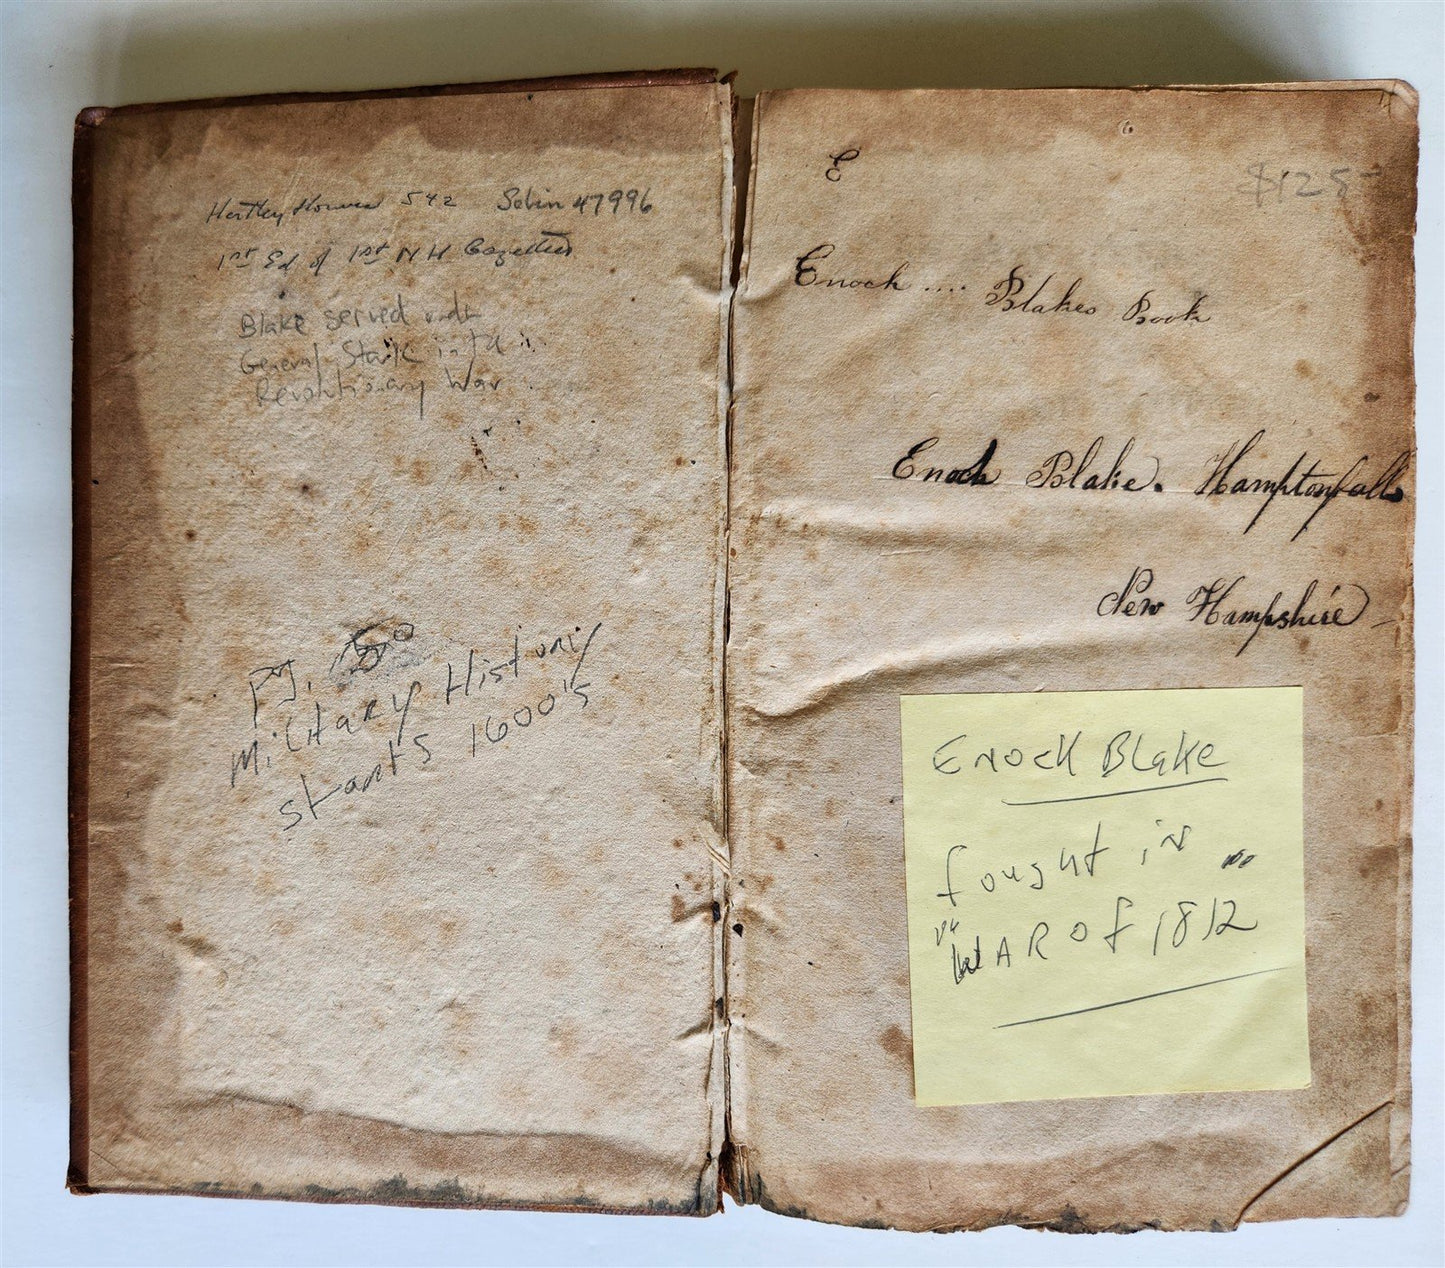 Hartley Howes 542 Sabin 47996
1st Ed of 1st NH Gazetteer
Blake served under
General Stark in the
Revolutionary War
Pg. 50
Military History
starts 1600's
E
$125-
Enoch .... Blakes Book
Enoch Blake. Hamptonfalls
New Hampshire
Enock Blake
fought in
"WAR of 1812